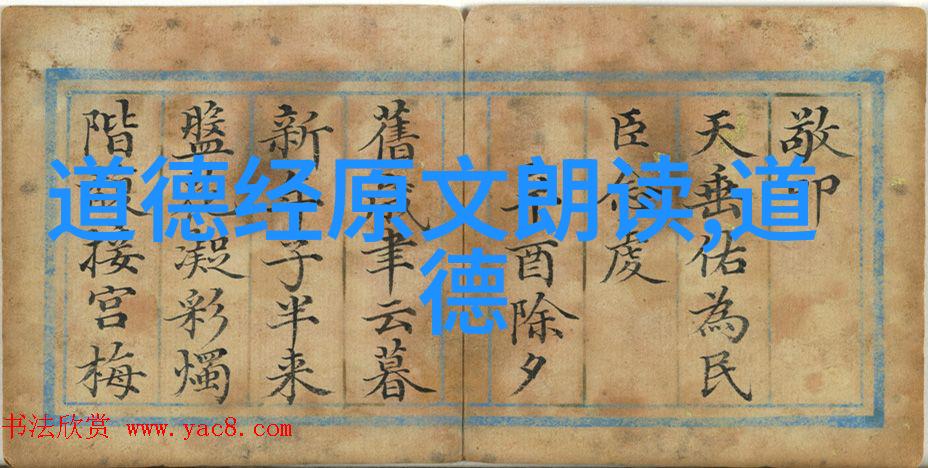 道德经原文朗读,道
德
敬
天垂佑為民
臣虔
酉除夕
舊歲聿云暮
新年子半来
盤花凝彩燭
階接宫梅
书法欣赏 www.yac8.com